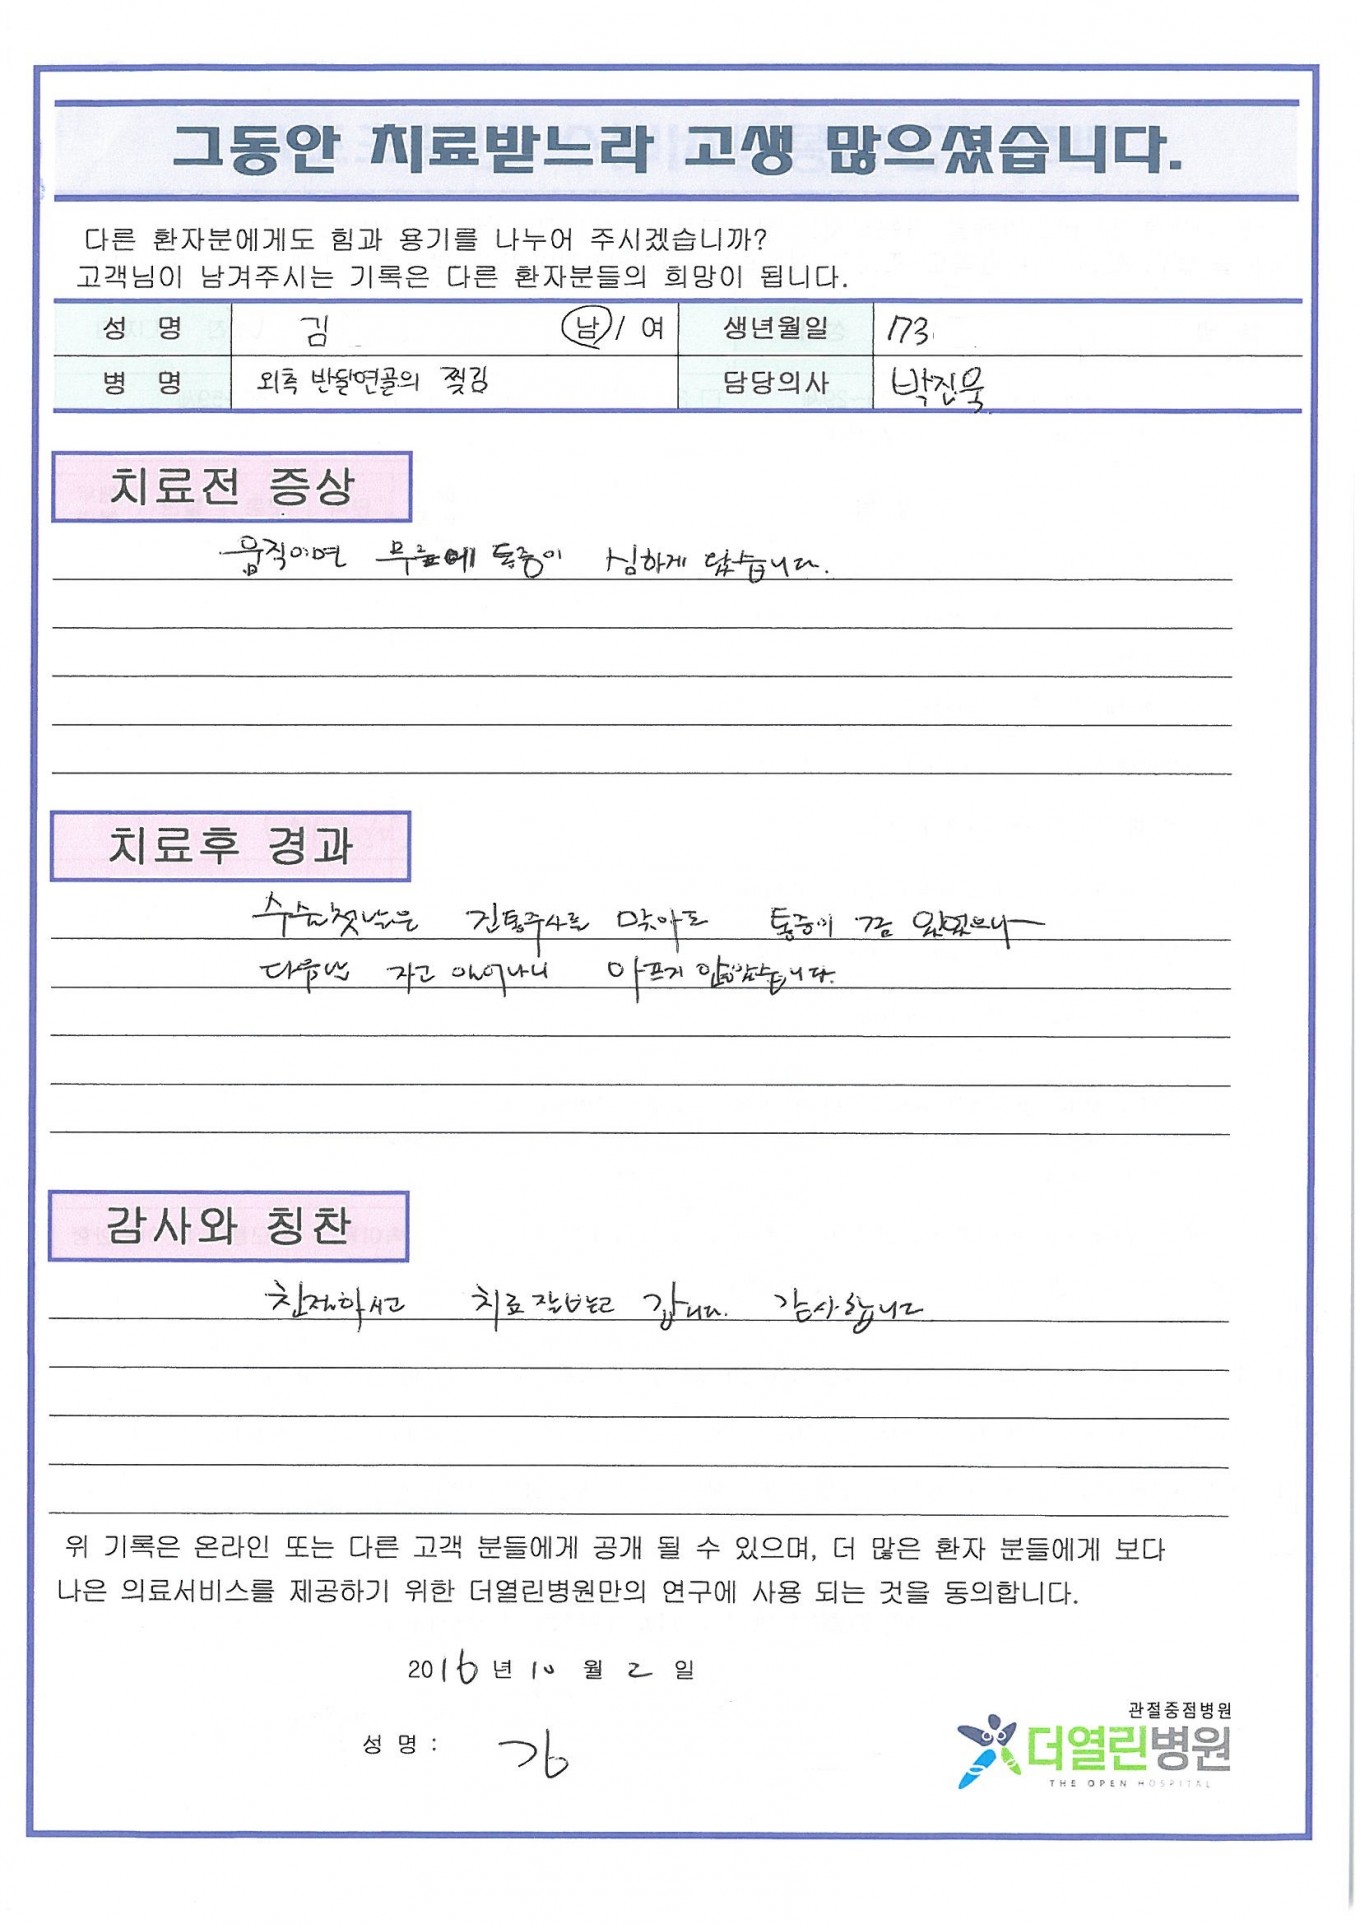 그동안 치료받느라 고생 많으셨습니다.
다른 환자분에게도 힘과 용기를 나누어 주시겠습니까?
고객님이 남겨주시는 기록은 다른 환자분들의 희망이 됩니다.
성 명 김 남 / 여 생년월일 173
병 명 외측 반달연골의 찢김 담당의사 박진욱
치료전 증상
움직이면 무릎에 통증이 심하게 왔습니다.
치료후 경과
수술첫날은 진통주사를 맞아도 통증이 조금 있었으나
다음날 자고 일어나니 아프지 않았습니다.
감사와 칭찬
친절하시고 치료 잘받고 갑니다. 감사합니다
위 기록은 온라인 또는 다른 고객 분들에게 공개 될 수 있으며, 더 많은 환자 분들에게 보다
나은 의료서비스를 제공하기 위한 더열린병원만의 연구에 사용 되는 것을 동의합니다.
2016 년 10 월 2 일
성 명 : 김
관절중점병원
더열린병원
THE OPEN HOSPITAL